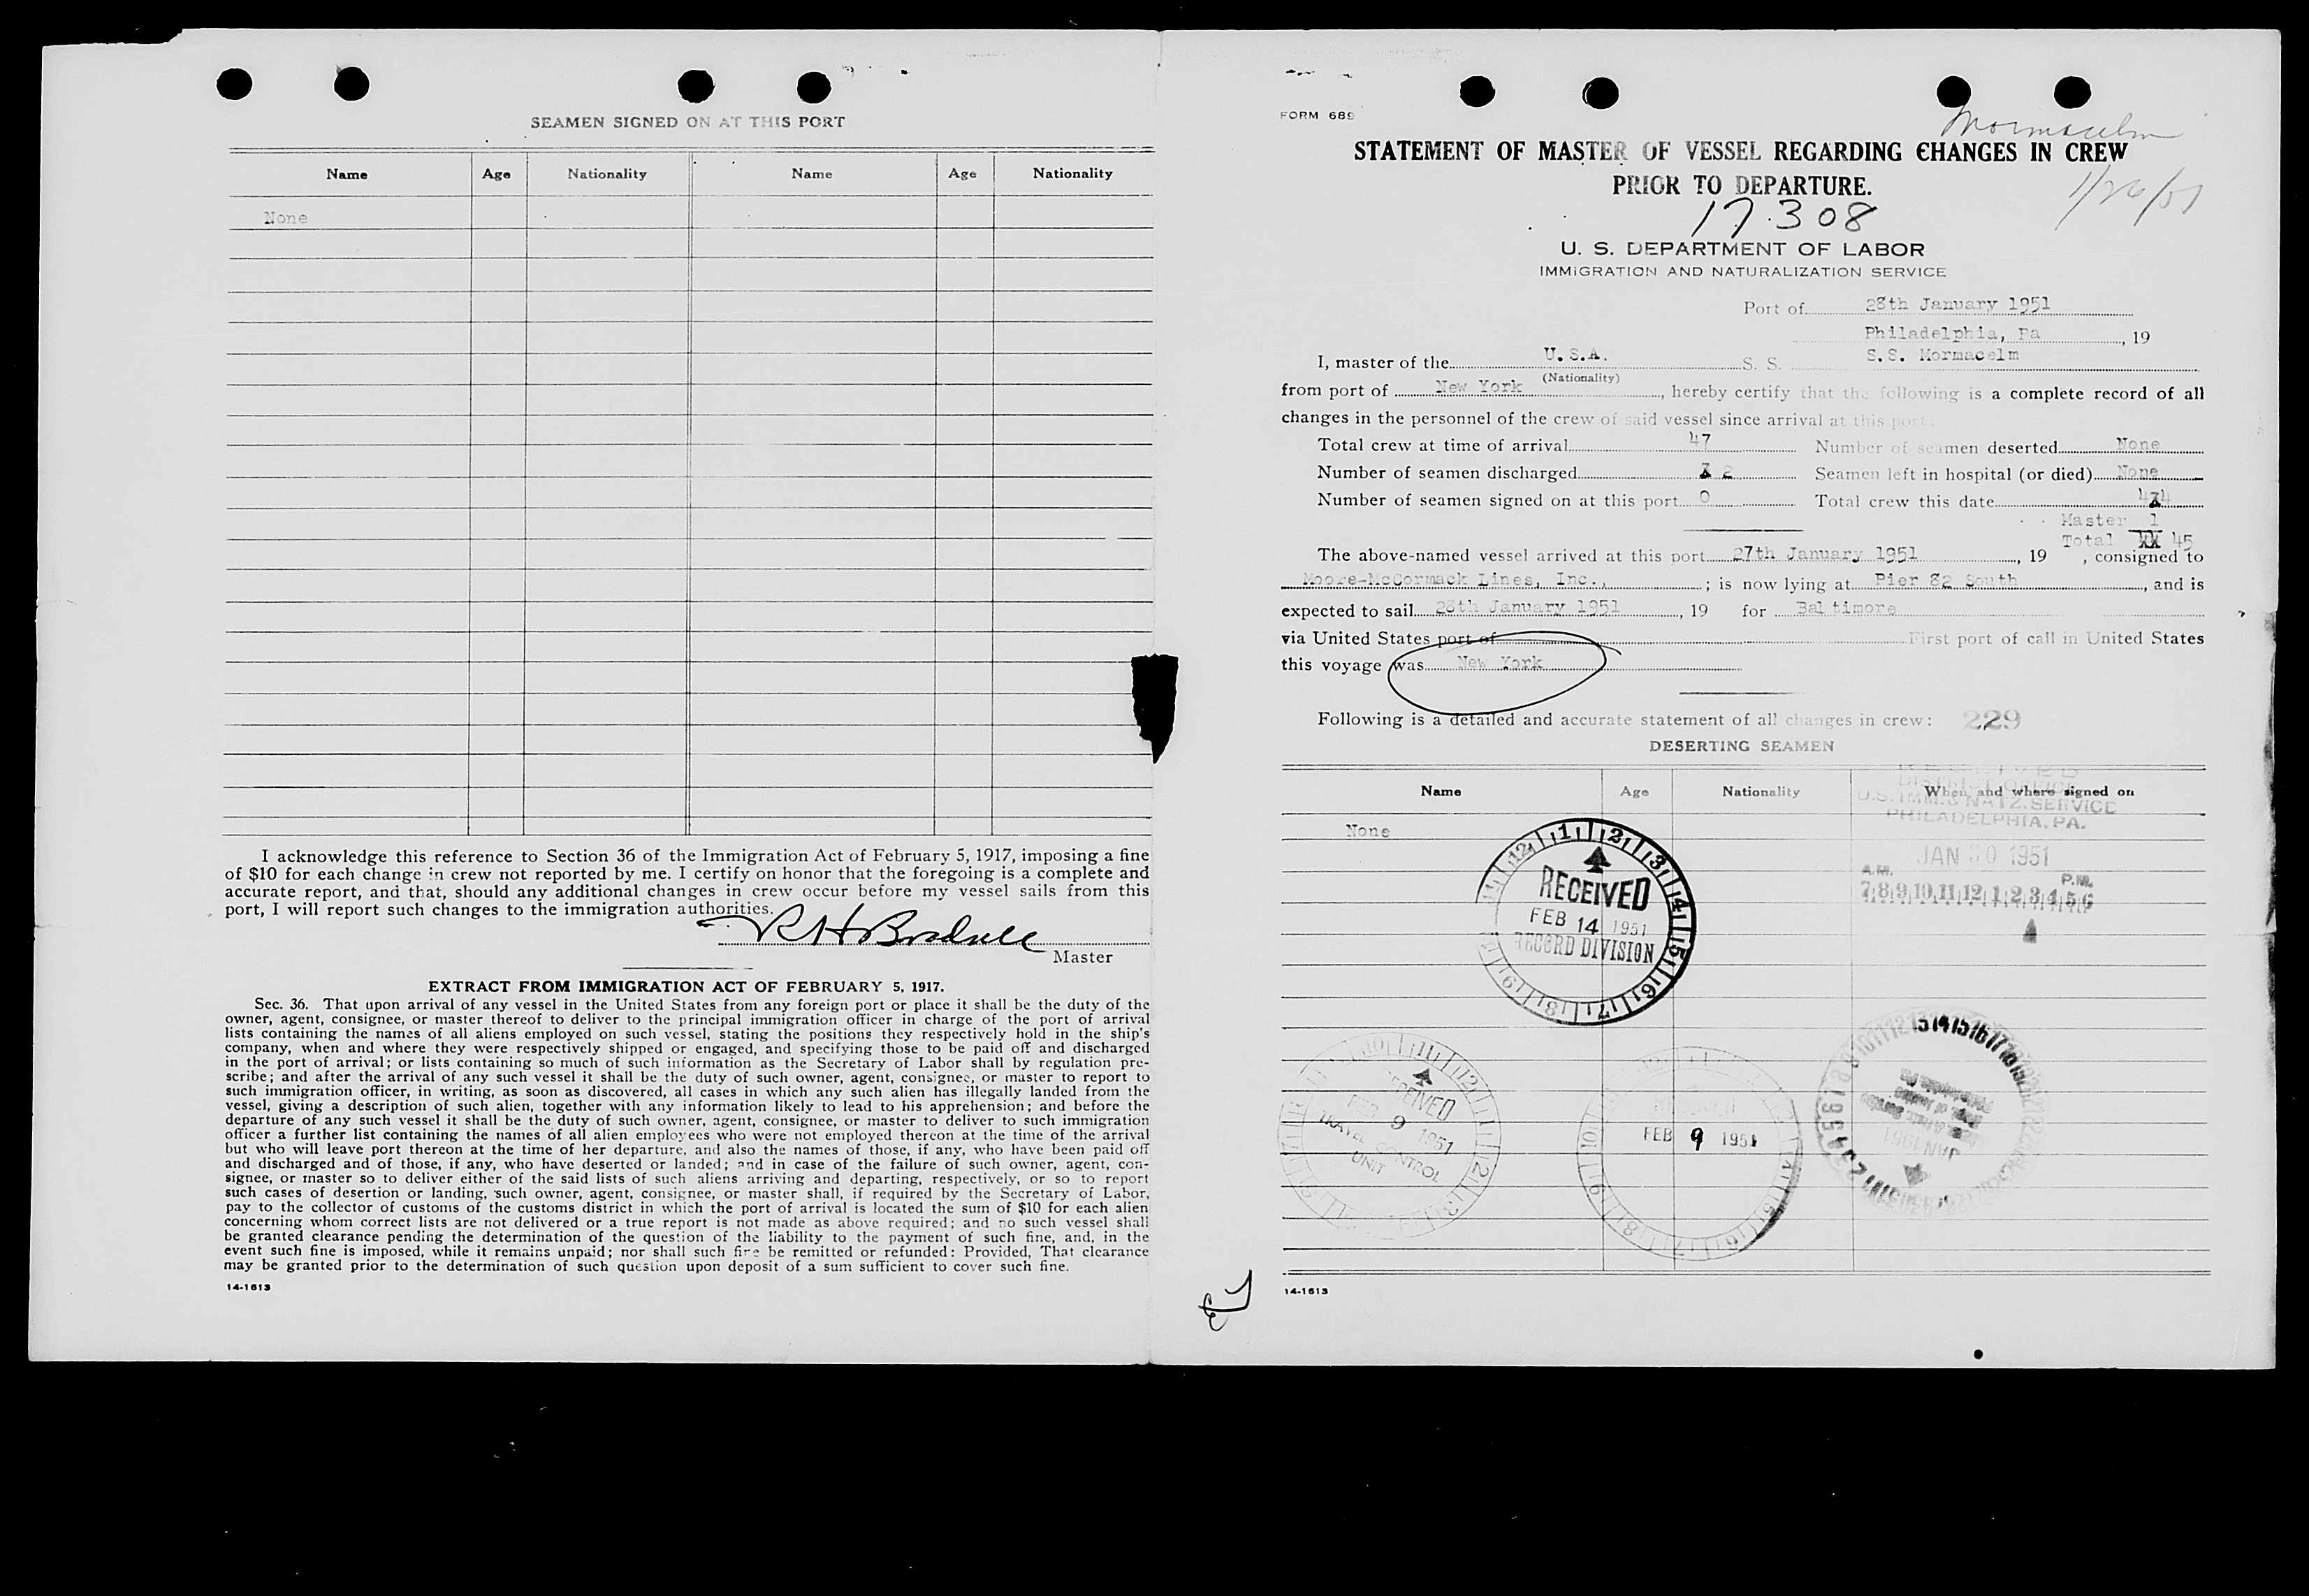 SEAMEN SIGNED ON AT THIS PORT
Name Age Nationality Name Age Nationality
None
I acknowledge this reference to Section 36 of the Immigration Act of February 5, 1917, imposing a fine
of $10 for each change in crew not reported by me. I certify on honor that the foregoing is a complete and
accurate report, and that, should any additional changes in crew occur before my vessel sails from this
port, I will report such changes to the immigration authorities.
Master
EXTRACT FROM IMMIGRATION ACT OF FEBRUARY 5, 1917.
Sec. 36. That upon arrival of any vessel in the United States from any foreign port or place it shall be the duty of the
owner, agent, consignee, or master thereof to deliver to the principal immigration officer in charge of the port of arrival
lists containing the names of all aliens employed on such vessel, stating the positions they respectively hold in the ship's
company, when and where they were respectively shipped or engaged, and specifying those to be paid off and discharged
in the port of arrival; or lists containing so much of such information as the Secretary of Labor shall by regulation pre-
scribe; and after the arrival of any such vessel it shall be the duty of such owner, agent, consignee, or master to report to
such immigration officer, in writing, as soon as discovered, all cases in which any such alien has illegally landed from the
vessel, giving a description of such alien, together with any information likely to lead to his apprehension; and before the
departure of any such vessel it shall be the duty of such owner, agent, consignee, or master to deliver to such immigration
officer a further list containing the names of all alien employees who were not employed thereon at the time of the arrival
but who will leave port thereon at the time of her departure, and also the names of those, if any, who have been paid off
and discharged and of those, if any, who have deserted or landed; and in case of the failure of such owner, agent, con-
signee, or master so to deliver either of the said lists of such aliens arriving and departing, respectively, or so to report
such cases of desertion or landing, such owner, agent, consignee, or master shall, if required by the Secretary of Labor,
pay to the collector of customs of the customs district in which the port of arrival is located the sum of $10 for each alien
concerning whom correct lists are not delivered or a true report is not made as above required; and no such vessel shall
be granted clearance pending the determination of the question of the liability to the payment of such fine, and, in the
event such fine is imposed, while it remains unpaid; nor shall such fine be remitted or refunded: Provided, That clearance
may be granted prior to the determination of such question upon deposit of a sum sufficient to cover such fine.
14-1613
FORM 689
Mormacelm
STATEMENT OF MASTER OF VESSEL REGARDING CHANGES IN CREW
PRIOR TO DEPARTURE.
1/26/51
17308
U. S. DEPARTMENT OF LABOR
IMMIGRATION AND NATURALIZATION SERVICE
Port of 28th January 1951
Philadelphia, Pa , 19
I, master of the U.S.A. S. S. S.S. Mormacelm
(Nationality)
from port of New York , hereby certify that the following is a complete record of all
changes in the personnel of the crew of said vessel since arrival at this port.
Total crew at time of arrival 47 Number of seamen deserted None
Number of seamen discharged 2 Seamen left in hospital (or died) None
Number of seamen signed on at this port 0 Total crew this date 44
Master 1
Total 45
The above-named vessel arrived at this port 27th January 1951 , 19 , consigned to
Moore-McCormack Lines, Inc., ; is now lying at Pier 82 South , and is
expected to sail 28th January 1951 , 19 for Baltimore
via United States port of First port of call in United States
this voyage was New York
Following is a detailed and accurate statement of all changes in crew: 229
DESERTING SEAMEN
Name Age Nationality When and where signed on
None
RECEIVED
DISTRICT OFFICE
U.S. IMM. & NATZ. SERVICE
PHILADELPHIA, PA.
JAN 30 1951
A.M. P.M.
7 8 9 10 11 12 1 2 3 4 5 6
RECEIVED
FEB 14 1951
RECORD DIVISION
RECEIVED
FEB 9 1951
TRAVEL CONTROL
UNIT
RECEIVED
FEB 9 1951
JAN 1951
14-1613